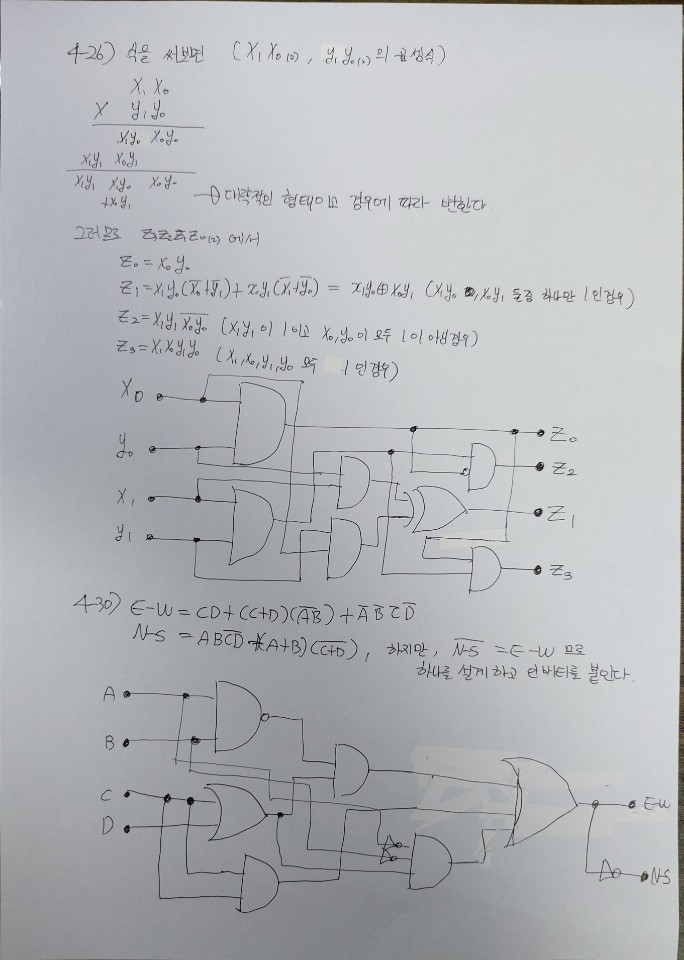 4-26) 식을 써보면 (X₁X₀₍₂₎, y₁y₀₍₂₎의 곱셈식)
X₁ X₀
X y₁ y₀
X₁y₀ X₀y₀
X₁y₁ X₀y₁
X₁y₁ X₁y₀ X₀y₀
+X₀y₁
→ 대략적인 형태이고 경우에 따라 변한다.
그러므로 Z₃Z₂Z₁Z₀₍₂₎ 에서
Z₀ = X₀y₀
Z₁ = X₁y₀(X̅₀+y̅₁) + X₀y₁(X̅₁+y̅₀) = X₁y₀⊕X₀y₁ (X₁y₀, X₀y₁ 둘중 하나만 1인경우)
Z₂ = X₁y₁ X̅₀y̅₀ (X₁y₁이 1이고 X₀,y₀이 모두 1이 아닌경우)
Z₃ = X₁X₀y₁y₀ (X₁,X₀,y₁,y₀ 모두 1인경우)
X₀
Z₀
y₀
Z₂
X₁
Z₁
y₁
Z₃
4-30) E-W = CD+(C+D)(A̅B̅)+A̅ B̅ C̅ D̅
N-S = ABC̅D̅+(A+B)(C̅+D̅), 하지만, N̅-̅S̅ = E-W 므로
하나를 설계하고 인버터를 붙인다.
A
B
C
E-W
D
N-S